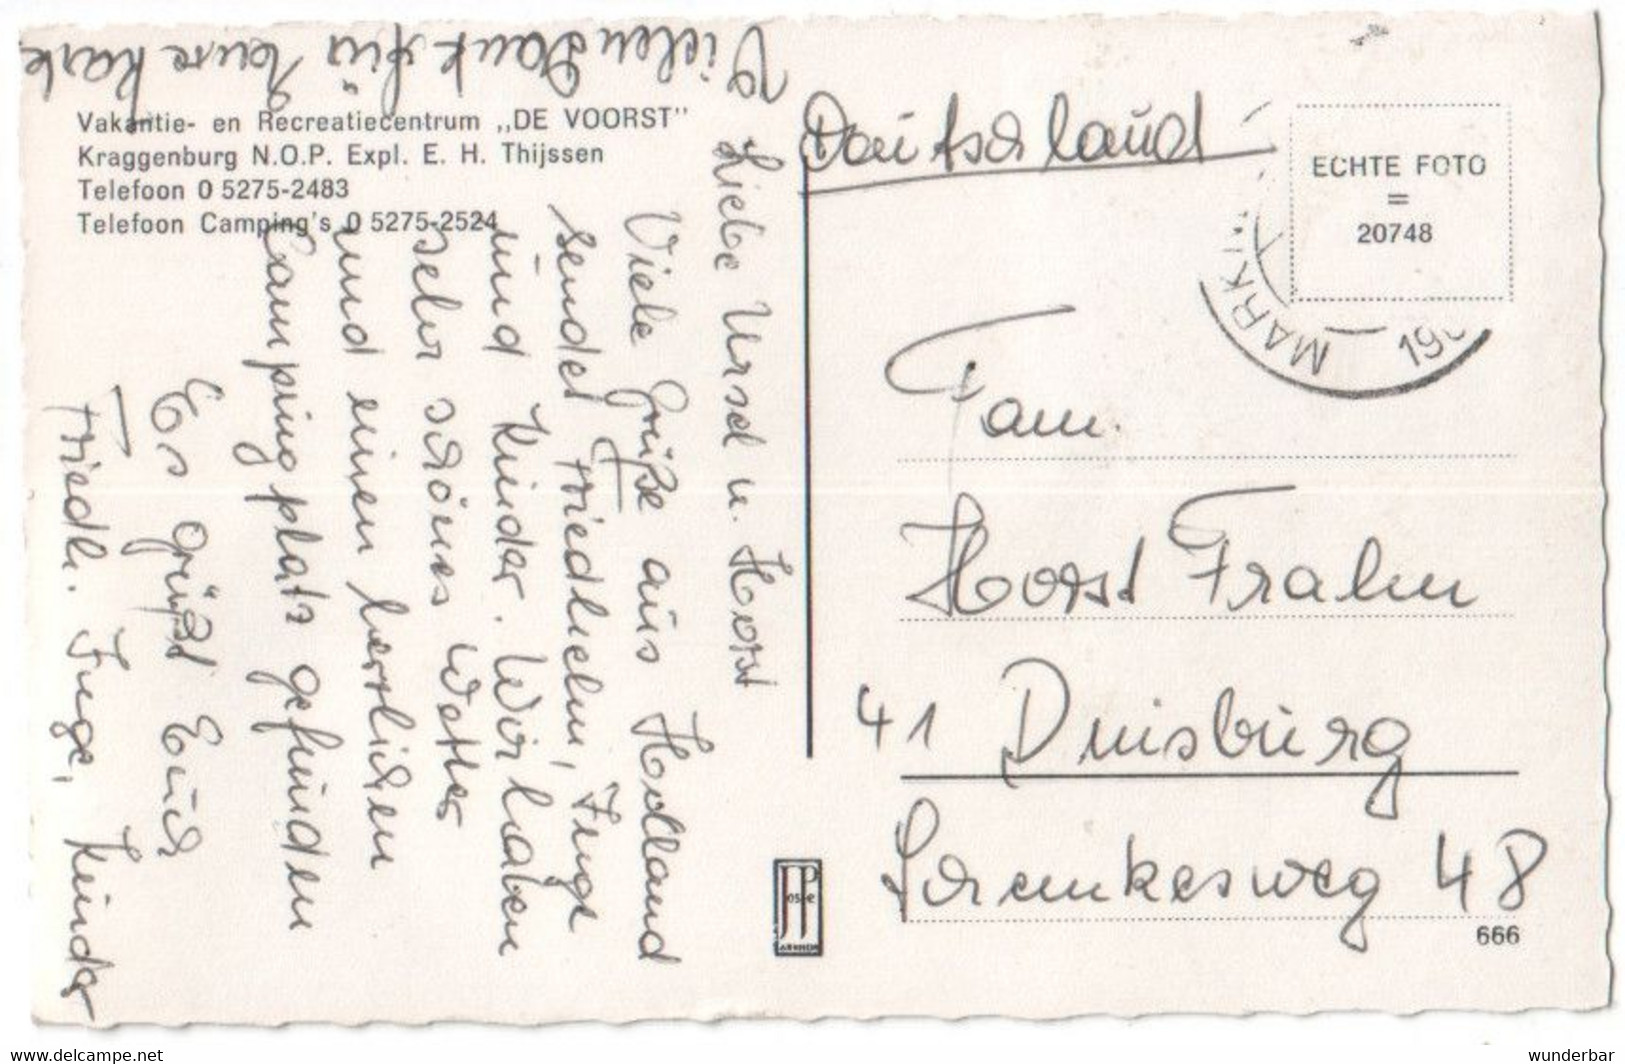 Vielen Dank für Eure Karte
Vakantie- en Recreatiecentrum „DE VOORST"
Kraggenburg N.O.P. Expl. E. H. Thijssen
Telefoon 0 5275-2483
Telefoon Camping's 0 5275-2524
Liebe Ursel u. Horst
Viele Grüße aus Holland
sendet Friedhelm, Inge
und Kinder. Wir haben
sehr schönes Wetter
und einen herrlichen
Campingplatz gefunden
Es grüßt Euch
Friedh. Inge, Kinder
Deutschland
ECHTE FOTO
=
20748
MARK
19
Fam.
Horst Frahm
41 Duisburg
48
666
JosPé
ARNHEM
www.delcampe.net
wunderbar